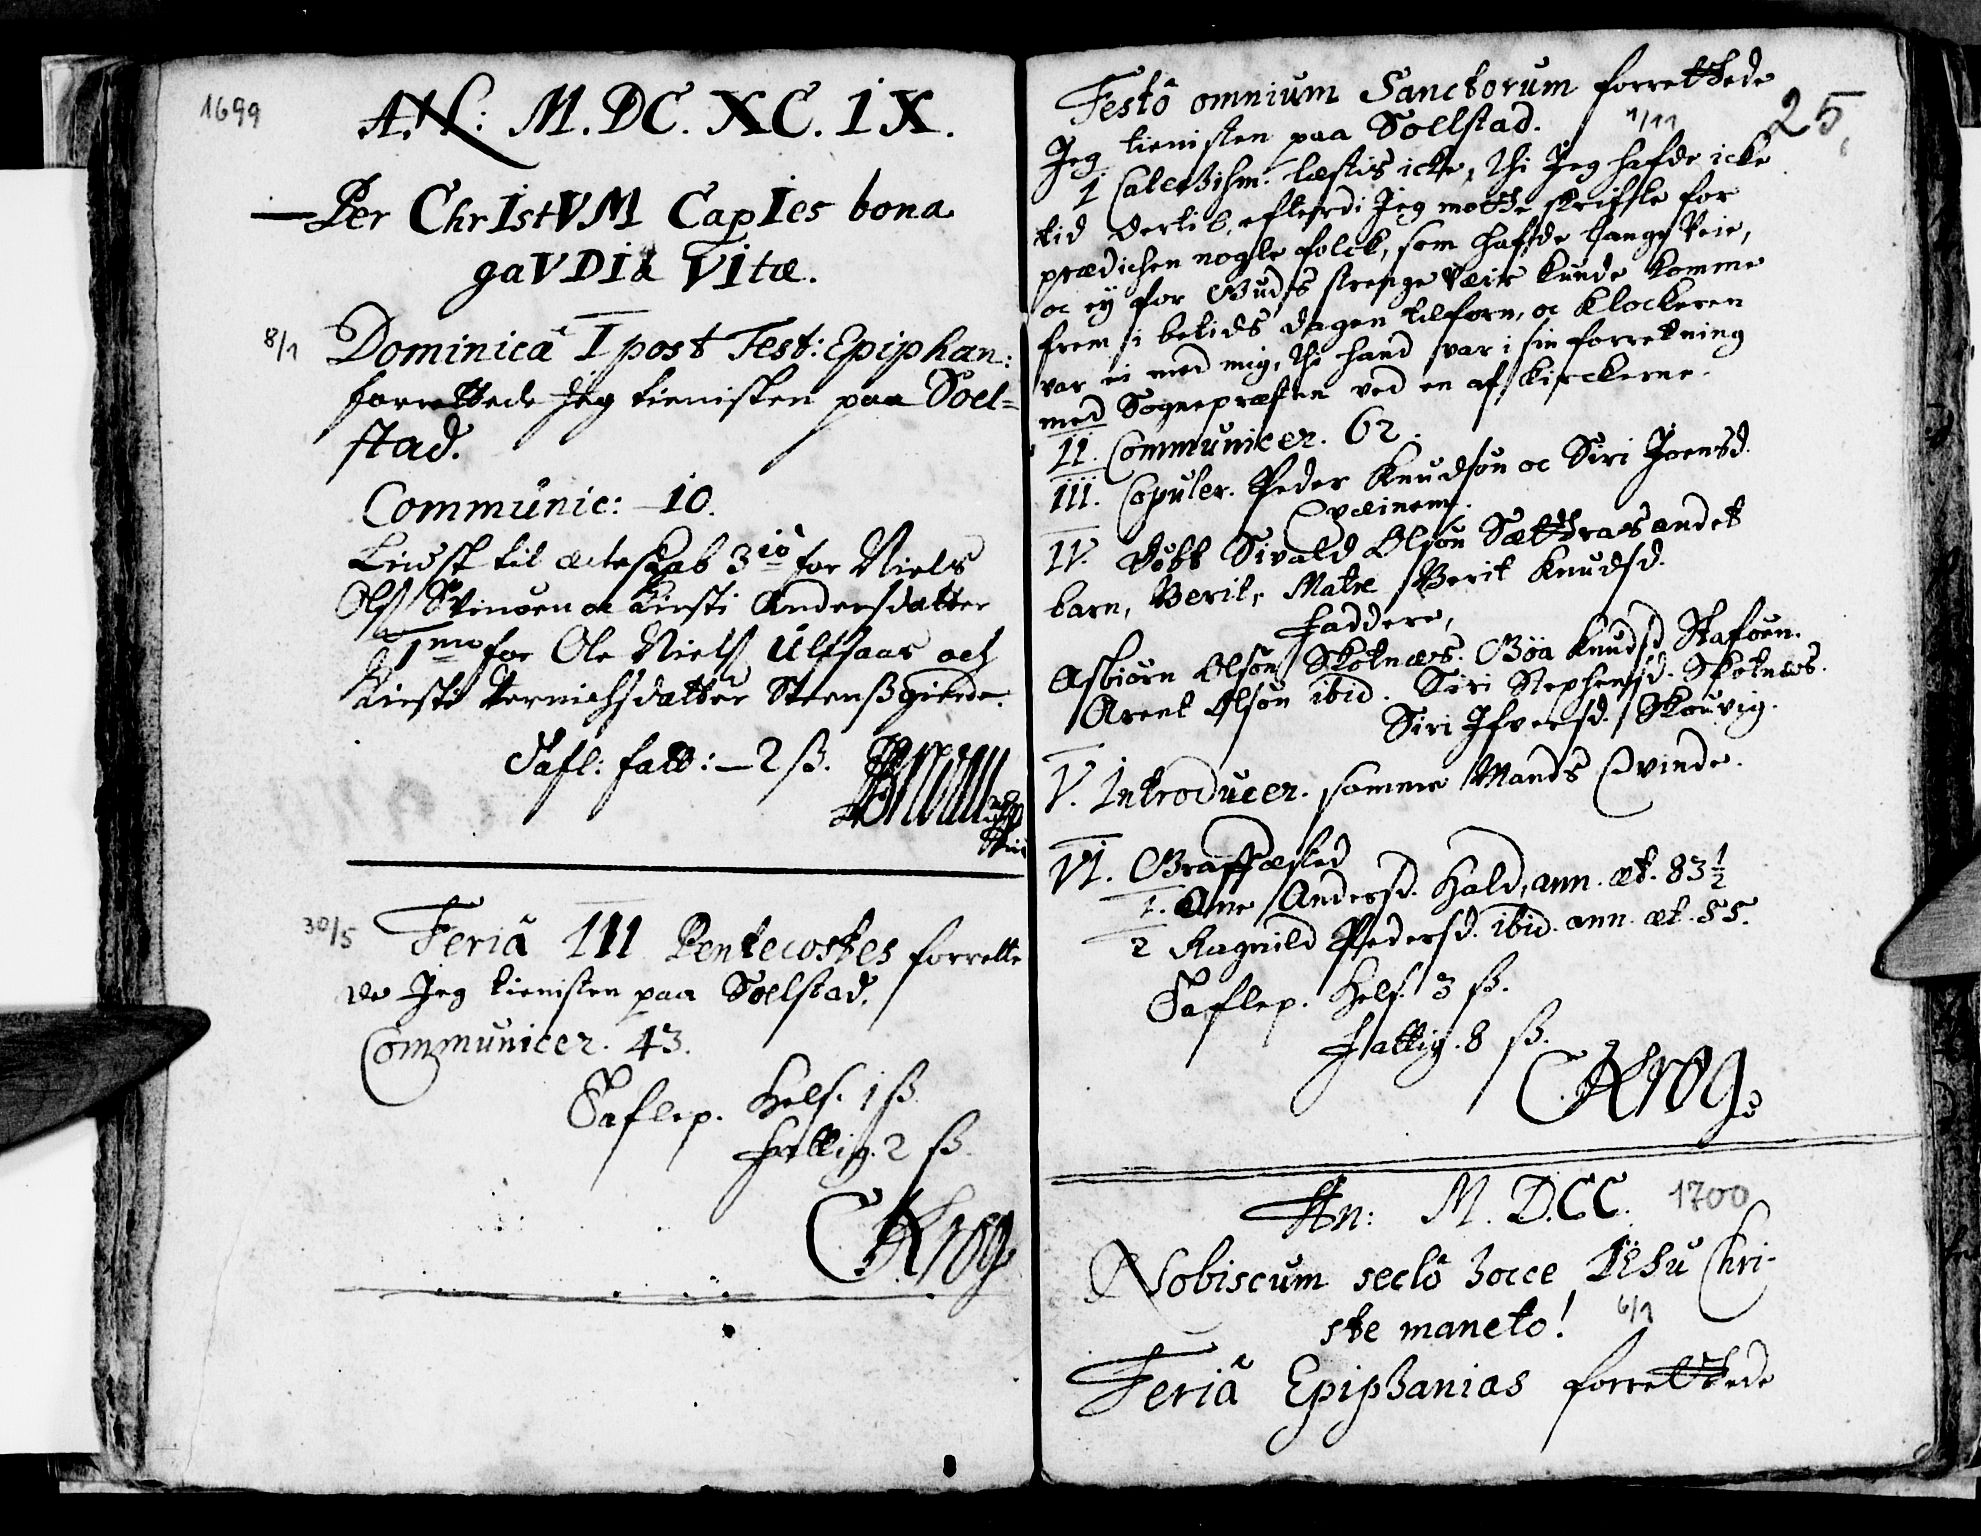 1699
AN: M.DC.XC.IX.
Per ChrIstVM CapIes bona
gaVDIa VItæ.
8/1 Dominicâ I post Fest: Epiphan:
forrettede Jeg tienisten paa Soel=
stad.
Communic: 10.
til æcteskab 3io for Niels
Ols oc Kirsti Andersdatter
1mo for Ole Niels Ulfsaas och
Kirsti datter
Tafl: fatt: 2 ß.
30/5 Feriâ III Pentecostes forrette
de Jeg tienisten paa Soelstad.
Communicer. 43.
Taflep. Hels. 1 ß.
fattig. 2 ß.
CKrog
25
Festô omnium Sanctorum forrettede
Jeg tienisten paa Soelstad. 1/11
I Catechism. læstis icke, thi Jeg hafde icke
tid dertil, efterdi Jeg motte skrifte for
prædichen nogle folck, som hafde lange Veie,
oc ey for Guds strenge Veir kunde komme
frem i betids dagen tilforn, oc Klockeren
var ei med mig, thi hand var i sin forretning
med Sognepræsten ved en af Kirckerne.
II. Communicer. 62.
III. Copuler. Peder Knudsøn oc Siri Joensd.
Qvæinem.
IV. Døbt Sivald Olsøn Sættraas andet
barn, Berit, Matre Berit Knudsd.
Faddere,
Asbiørn Olsøn Skotnæs. Böa Knudsd Staføen.
Arent Olsøn ibid. Siri Stephensd. Skotnæs.
Siri Ifversd. Skouvig.
V. Introducer. samme Mands Qvinde.
VI. Graffæsted
1. Ane Andersd. Hald, ann. æt. 83 1/2
2 Ragnild Pedersd. ibid. ann. æt. 55.
Taflep. Hels. 3 ß.
fattig. 8 ß.
CKrog
An: M.D.CC. 1700
Nobiscum seclô hocce IESu Chri-
ste maneto! 6/1
Feriâ Epiphanias forrettede